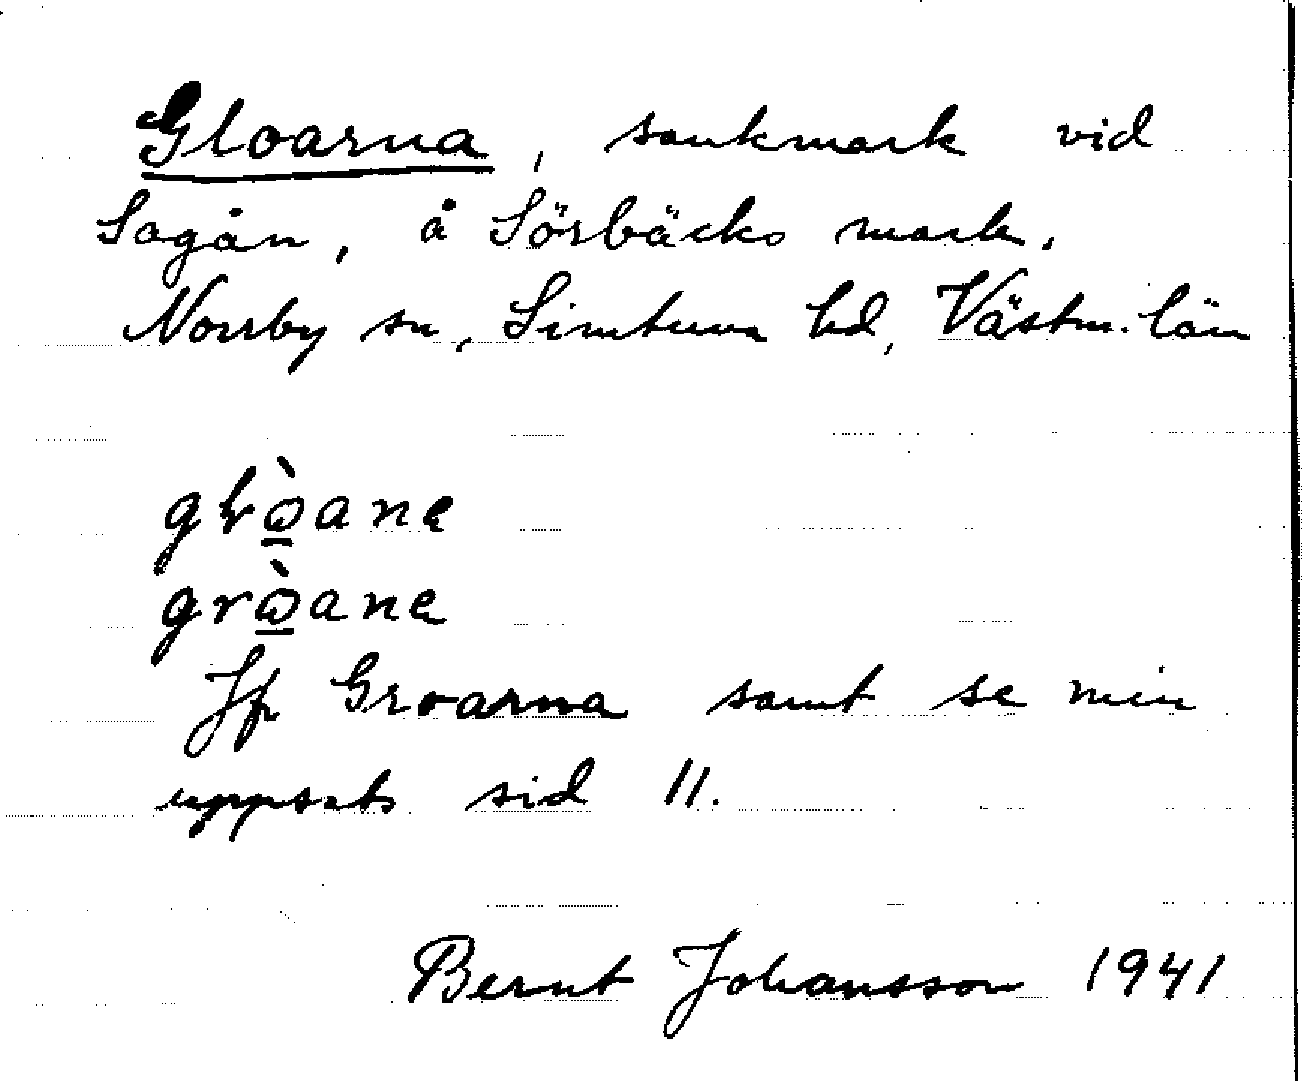 Gloarna, sankmark vid
Sagån, å Sörbäcks mark.
Norrby sn, Simtuna hd, Västm. län
gɫὼ̱ane
grὼ̱ane
Jfr Groarna samt se min
uppsats sid 11.
Bernt Johansson 1941